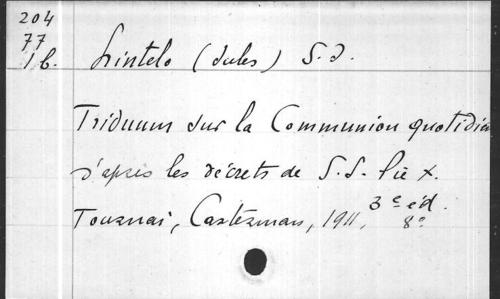 204
77
1b.
Lintelo (Jules) S.J.
Triduum sur la Communion quotidien
d'après les décrets de S.S. Pie X.
Tournai, Casterman, 1911, 3e éd.
8°